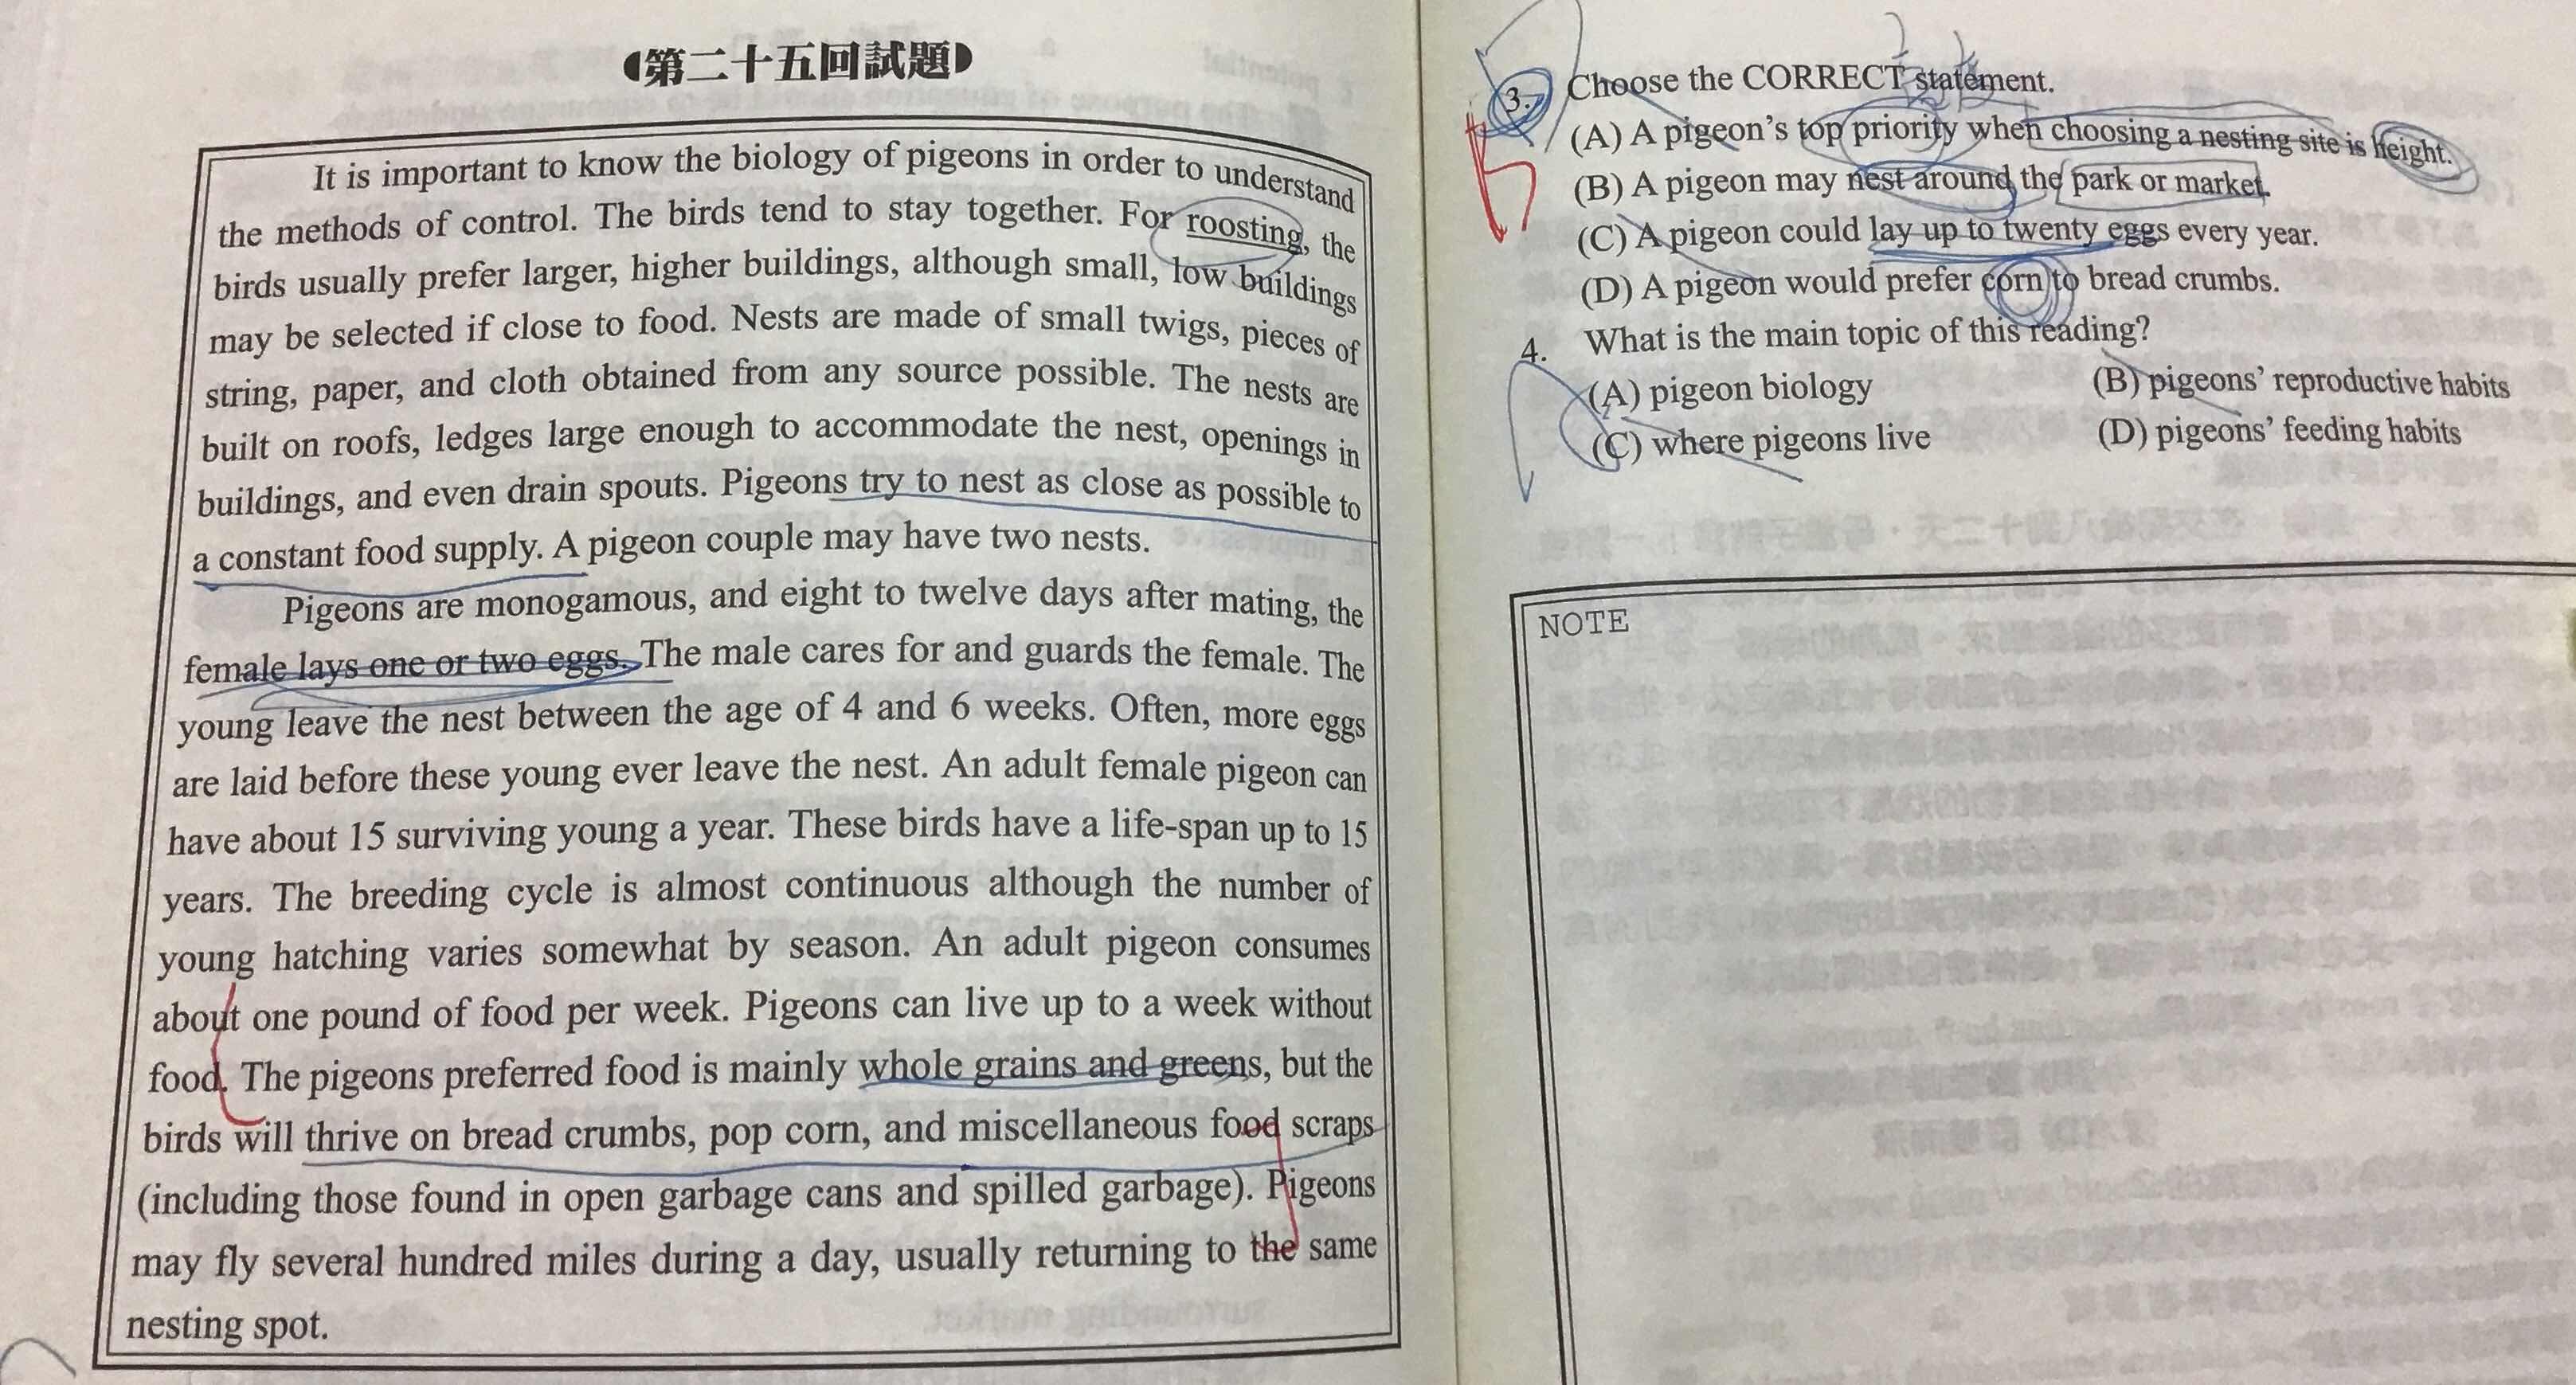 第二十五回試題
It is important to know the biology of pigeons in order to understand
the methods of control. The birds tend to stay together. For roosting, the
birds usually prefer larger, higher buildings, although small, low buildings
may be selected if close to food. Nests are made of small twigs, pieces of
string, paper, and cloth obtained from any source possible. The nests are
built on roofs, ledges large enough to accommodate the nest, openings in
buildings, and even drain spouts. Pigeons try to nest as close as possible to
a constant food supply. A pigeon couple may have two nests.
Pigeons are monogamous, and eight to twelve days after mating, the
female lays one or two eggs. The male cares for and guards the female. The
young leave the nest between the age of 4 and 6 weeks. Often, more eggs
are laid before these young ever leave the nest. An adult female pigeon can
have about 15 surviving young a year. These birds have a life-span up to 15
years. The breeding cycle is almost continuous although the number of
young hatching varies somewhat by season. An adult pigeon consumes
about one pound of food per week. Pigeons can live up to a week without
food. The pigeons preferred food is mainly whole grains and greens, but the
birds will thrive on bread crumbs, pop corn, and miscellaneous food scraps
(including those found in open garbage cans and spilled garbage). Pigeons
may fly several hundred miles during a day, usually returning to the same
nesting spot.
3. Choose the CORRECT statement.
(A) A pigeon's top priority when choosing a nesting site is height.
(B) A pigeon may nest around the park or market.
(C) A pigeon could lay up to twenty eggs every year.
(D) A pigeon would prefer corn to bread crumbs.
4. What is the main topic of this reading?
(A) pigeon biology (B) pigeons' reproductive habits
(C) where pigeons live (D) pigeons' feeding habits
NOTE